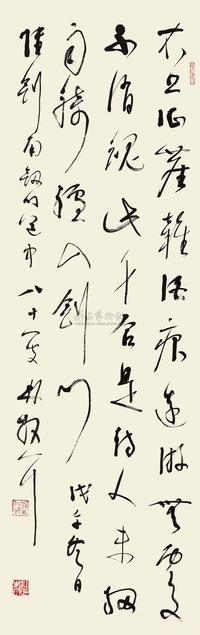 衣上征塵雜酒痕遠游無處
不消魂此身合是詩人未細
雨騎驢入劍門 戊午冬日
陸劍南劍門道中 八十一叟 林散耳